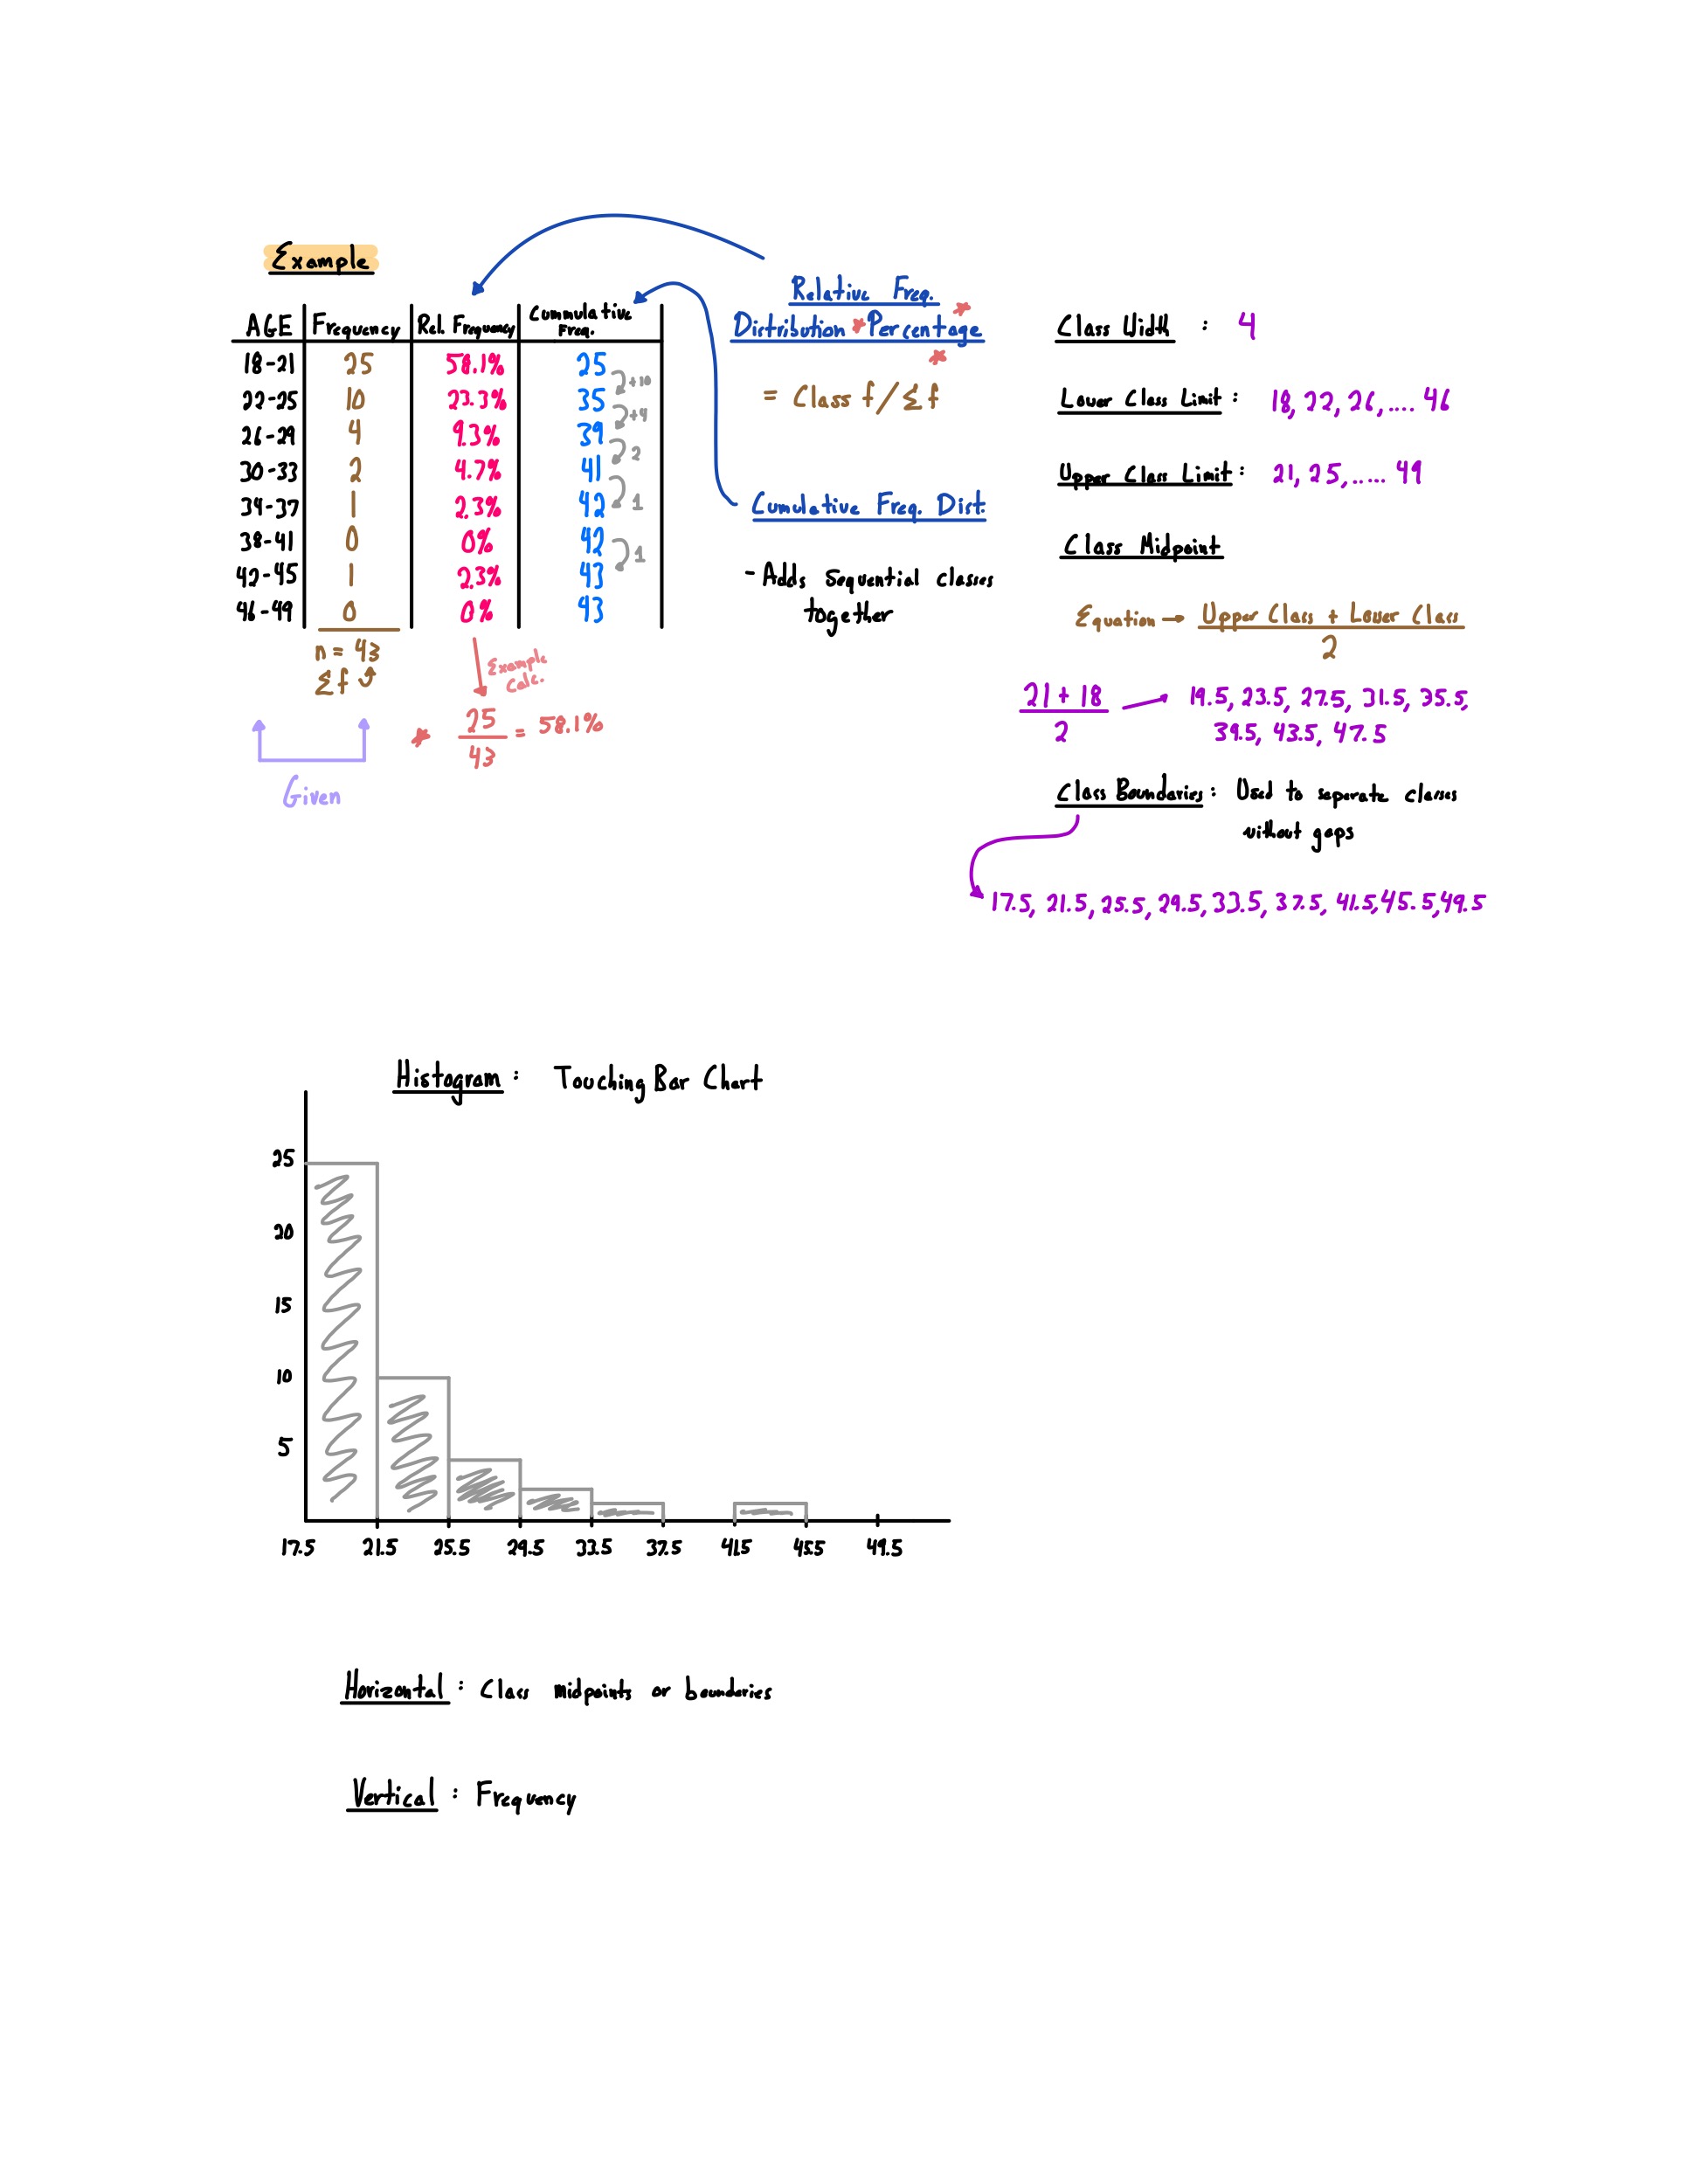 Example
AGE Frequency Rel. Frequency Cummulative Freq.
18-21 25 58.1% 25
+10
22-25 10 23.3% 35
+4
26-29 4 9.3% 39
2
30-33 2 4.7% 41
1
34-37 1 2.3% 42
38-41 0 0% 42
1
42-45 1 2.3% 43
46-49 0 0% 43
n = 43
Σf
Given
Example
Calc.
* 25/43 = 58.1%
Relative Freq.
Distribution * Percentage *
*
= Class f/Σf
Cumulative Freq. Dist.
- Adds sequential classes
together
Class Width : 4
Lower Class Limit : 18, 22, 26, .... 46
Upper Class Limit : 21, 25, ..... 49
Class Midpoint
Equation → Upper Class + Lower Class
2
21 + 18
2
19.5, 23.5, 27.5, 31.5, 35.5,
39.5, 43.5, 47.5
Class Boundaries : Used to seperate classes
without gaps
17.5, 21.5, 25.5, 29.5, 33.5, 37.5, 41.5, 45.5, 49.5
Histogram : Touching Bar Chart
25
20
15
10
5
17.5 21.5 25.5 29.5 33.5 37.5 41.5 45.5 49.5
Horizontal : Class midpoints or boundaries
Vertical : Frequency